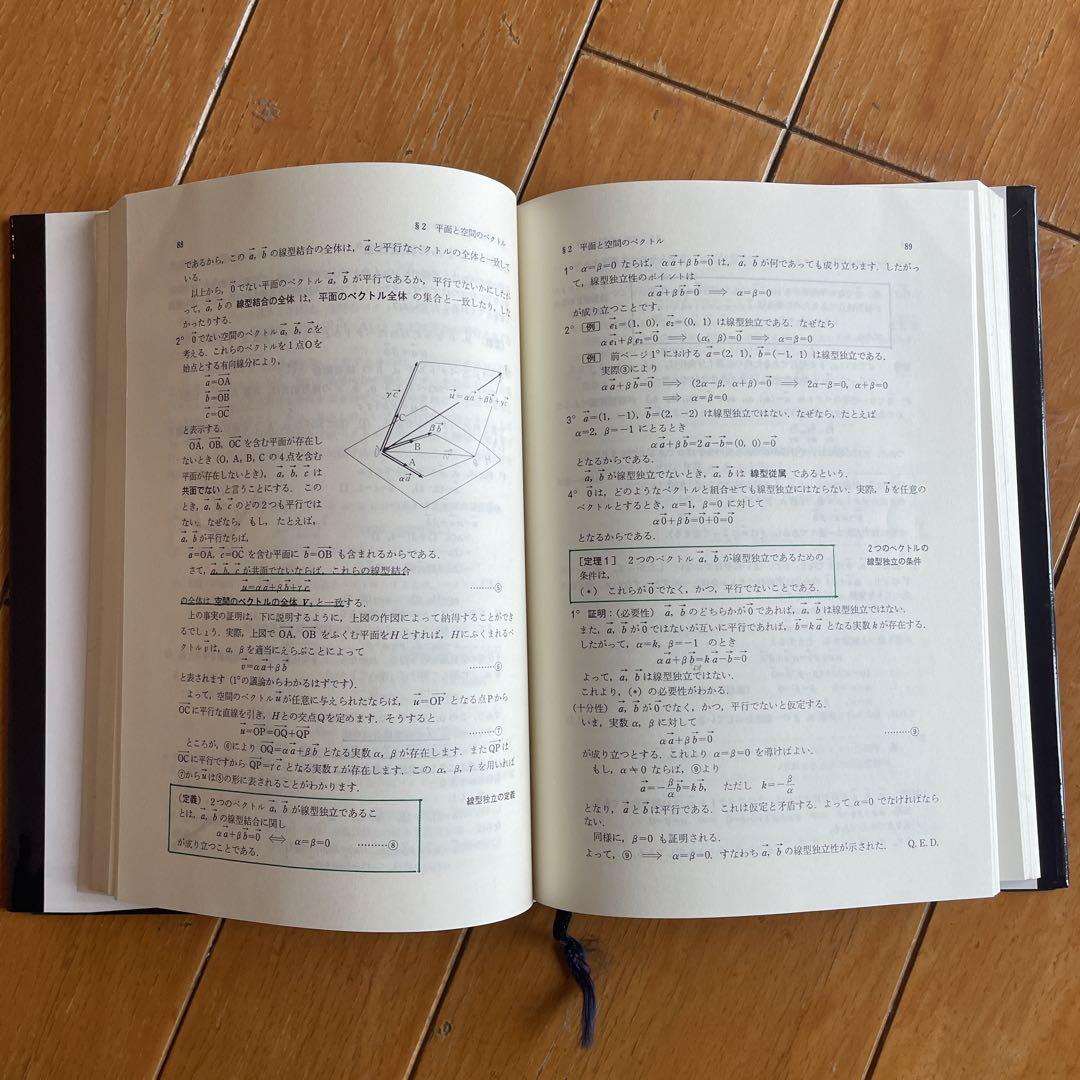 88
§2 平面と空間のベクトル
であるから，この a⃗, b⃗ の線型結合の全体は，a⃗ と平行なベクトルの全体と一致して
いる．
以上から，0⃗でない平面のベクトル a⃗, b⃗ が平行であるか，平行でないかにしたが
って，a⃗, b⃗ の 線型結合の全体 は，平面のベクトル全体 の集合と一致したり，し
なかったりする．
2° 0⃗でない空間のベクトル a⃗, b⃗, c⃗を
考える．これらのベクトルを1点Oを
始点とする有向線分により，
a⃗=OA⃗
b⃗=OB⃗
c⃗=OC⃗
と表示する．
OA⃗, OB⃗, OC⃗ を含む平面が存在し
ないとき (O, A, B, C の4点を含む
平面が存在しないとき)，a⃗, b⃗, c⃗ は
共面でない と言うことにする．この
とき，a⃗, b⃗, c⃗ のどの2つも平行では
ない．なぜなら，もし，たとえば，
a⃗, b⃗ が平行ならば，
a⃗=OA⃗, c⃗=OC⃗ を含む平面に b⃗=OB⃗ も含まれるからである．
γc⃗
u⃗=αa⃗+βb⃗+γc⃗
C
βb⃗
B
A
αa⃗
さて，a⃗, b⃗, c⃗ が共面でないならば，これらの線型結合
u⃗=αa⃗+βb⃗+γc⃗ ………⑤
の全体は 空間のベクトルの全体 V₃ と一致する．
上の事実の証明は，下に説明するように，上図の作図によって納得することができ
るでしょう．実際，上図で OA⃗, OB⃗ をふくむ平面をHとすれば，Hにふくまれるベ
クトルv⃗は，α, β を適当にえらぶことによって
v⃗=αa⃗+βb⃗ ………⑥
と表されます (1°の議論からわかるはずです)．
よって，空間のベクトルu⃗が任意に与えられたならば，u⃗=OP⃗ となる点Pから
OC⃗に平行な直線を引き，Hとの交点Qを定めます．そうすると
u⃗=OP⃗=OQ⃗+QP⃗ ………⑦
ところが，⑥により OQ⃗=αa⃗+βb⃗ となる実数 α, β が存在します．またQP⃗は
OC⃗に平行ですから QP⃗=γc⃗ となる実数γが存在します．この α, β, γ を用いれば
⑦からu⃗は⑤の形に表されることがわかります．
(定義) 2つのベクトル a⃗, b⃗ が線型独立であるこ
とは，a⃗, b⃗ の線型結合に関し
αa⃗+βb⃗=0⃗ ⟺ α=β=0 ………⑧
が成り立つことである．
線型独立の定義
§2 平面と空間のベクトル
89
1° α=β=0 ならば，αa⃗+βb⃗=0⃗ は，a⃗, b⃗ が何であっても成り立ちます．したがっ
て，線型独立性のポイントは
αa⃗+βb⃗=0⃗ ⟹ α=β=0
が成り立つことです．
2° [例] e⃗₁=(1, 0), e⃗₂=(0, 1) は線型独立である．なぜなら
αe⃗₁+βe⃗₂=0⃗ ⟹ (α, β)=0⃗ ⟹ α=β=0
[例] 前ページ1°における a⃗=(2, 1), b⃗=(-1, 1) は線型独立である．
実際③により
αa⃗+βb⃗=0⃗ ⟹ (2α-β, α+β)=0⃗ ⟹ 2α-β=0, α+β=0
⟹ α=β=0
3° a⃗=(1, -1), b⃗=(2, -2) は線型独立ではない．なぜなら，たとえば
α=2, β=-1 にとるとき
αa⃗+βb⃗=2a⃗-b⃗=(0, 0)=0⃗
となるからである．
a⃗, b⃗ が線型独立でないとき，a⃗, b⃗ は 線型従属 であるという．
4° 0⃗は，どのようなベクトルと組合せても線型独立にはならない．実際，b⃗を任意の
ベクトルとするとき，α=1, β=0 に対して
α0⃗+βb⃗=0⃗+0⃗=0⃗
となるからである．
[定理1] 2つのベクトル a⃗, b⃗ が線型独立であるための
条件は，
(*) これらが0⃗でなく，かつ，平行でないことである．
2つのベクトルの
線型独立の条件
1° 証明：(必要性) a⃗, b⃗ のどちらかが0⃗であれば，a⃗, b⃗ は線型独立ではない．
また，a⃗, b⃗ が0⃗ではないが互いに平行であれば，b⃗=ka⃗ となる実数kが存在する．
したがって，α=k, β=-1 のとき
αa⃗+βb⃗=ka⃗-b⃗=0⃗
よって，a⃗, b⃗ は線型独立ではない．
これより，(*) の必要性がわかる．
(十分性) a⃗, b⃗ が0⃗でなく，かつ，平行でないと仮定する．
いま，実数 α, β に対して
αa⃗+βb⃗=0⃗ ………⑨
が成り立つとする．これより α=β=0 を導けばよい．
もし，α≠0 ならば，⑨より
a⃗=-β/α b⃗=kb⃗, ただし k=-β/α
となり，a⃗とb⃗は平行である．これは仮定と矛盾する．よって α=0 でなければなら
ない．
同様に，β=0 も証明される．
よって，⑨ ⟹ α=β=0．すなわち a⃗, b⃗ の線型独立性が示された． Q.E.D.